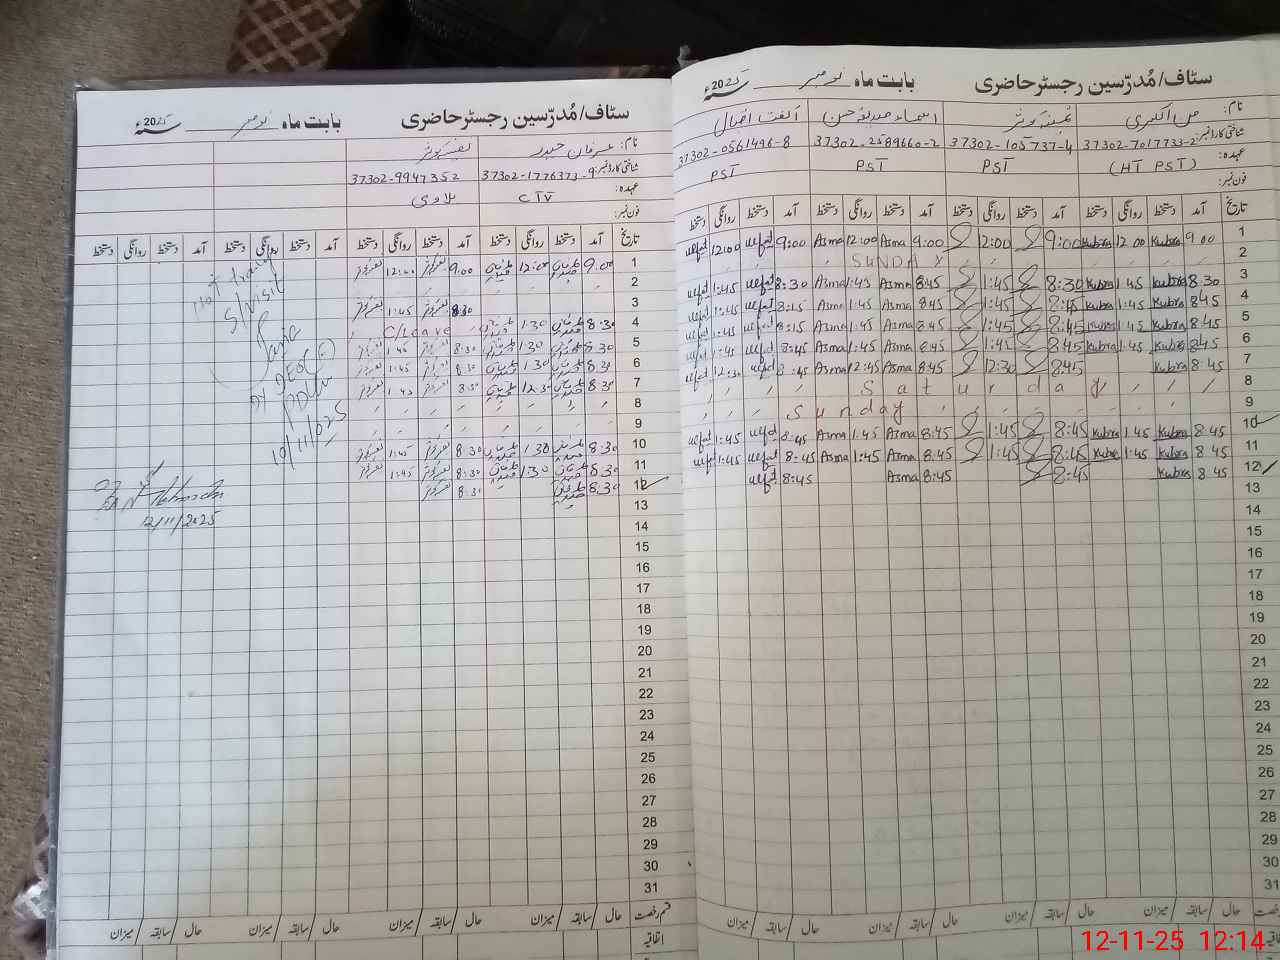 سٹاف/مُدرّسین رجسٹر حاضری بابت ماہ نومبر سنہ 2025ء
نام: گل اکبری ثمینہ کوثر اسماء صدیقہ حسن الفت اقبال
شناختی کارڈ نمبر: 37302-7017733-2 37302-105737-4 37302-2589660-2 37302-0561496-8
عہدہ: (HT PST) PST PST PST
فون نمبر:
تاریخ آمد دستخط روانگی دستخط آمد دستخط روانگی دستخط آمد دستخط روانگی دستخط آمد دستخط روانگی دستخط
1 9 00 Kubra 12 00 Kubra 9:00 12:00 9:00 Asma 12:00 Asma 9:00 Ulfat 12:00 Ulfat
2 SUNDAY
3 8 30 Kubra 1 45 Kubra 8:30 1:45 8:45 Asma 1:45 Asma 8:30 Ulfat 1:45 Ulfat
4 8 45 Kubra 1 45 Kubra 8:45 1:45 8:45 Asma 1:45 Asma 8:15 Ulfat 1:45 Ulfat
5 8:45 Kubra 1:45 Kubra 8:45 1:45 8:45 Asma 1:45 Asma 8:15 Ulfat 1:45 Ulfat
6 8:45 Kubra 1:45 Kubra 8:45 1:45 8:45 Asma 1:45 Asma 8:45 Ulfat 1:45 Ulfat
7 8:45 Kubra 8:45 12:30 8:45 Asma 12:45 Asma 8:45 Ulfat 12:30 Ulfat
8 Saturday
9 Sunday
10 8:45 Kubra 1:45 Kubra 8:45 1:45 8:45 Asma 1:45 Asma 8:45 Ulfat 1:45 Ulfat
11 8 45 Kubra 1:45 Kubra 8:45 1:45 8:45 Asma 1:45 Asma 8:45 Ulfat 1:45 Ulfat
12 8 45 Kubra 8:45 8:45 Asma 8:45 Ulfat
13
14
15
16
17
18
19
20
21
22
23
24
25
26
27
28
29
30
31
رخصت حال / سابقہ / میزان حال / سابقہ / میزان حال / سابقہ / میزان حال / سابقہ / میزان
اتفاقیہ
سٹاف/مُدرّسین رجسٹر حاضری بابت ماہ نومبر سنہ 2025ء
نام: عرفان حیدر نفیسہ کوثر
شناختی کارڈ نمبر: 37302-1776373-9 37302-9947352
عہدہ: CTV بلاوی
فون نمبر:
تاریخ آمد دستخط روانگی دستخط آمد دستخط روانگی دستخط آمد دستخط روانگی دستخط آمد دستخط روانگی دستخط
1 9.00 12:00 9.00 12:00
2
3 8:30 1:45
4 8:30 1:30 C/Leave
5 8.30 1:30 8:30 1:45
6 8:30 1:30 8:30 1:45
7 8:30 12:30 8:30 1:45
8
9
10 8:30 1:30 8:30 1:45
11 8:30 1:30 8:30 1:45
12 8:30 8:30
13
14
15
16
17
18
19
20
21
22
23
24
25
26
27
28
29
30
31
قسم رخصت حال / سابقہ / میزان حال / سابقہ / میزان حال / سابقہ / میزان حال / سابقہ / میزان
اتفاقیہ
S/Visit
10/11/025
12/11/2025
12-11-25 12:14